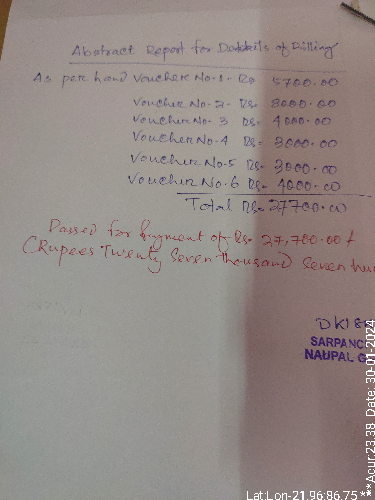 Abstract Report for Dakkils of Billing
As pere hand Voucher No-1- Rs 5700.00
Voucher No-2- Rs- 8000.00
Voucher No-3 Rs- 4000.00
Voucher No-4 Rs- 3000.00
Voucher No-5 Rs- 3000.00
Voucher No-6 Rs- 4000.00
Total Rs- 27700.00
Passed for Payment of Rs- 27,700.00 /
(Rupees Twenty Seven thousand Seven hu
DK188
SARPANC
NAUPAL G
Lat:Lon-21.96:86.75 ***Acur:23.38 Date: 30-01-2024